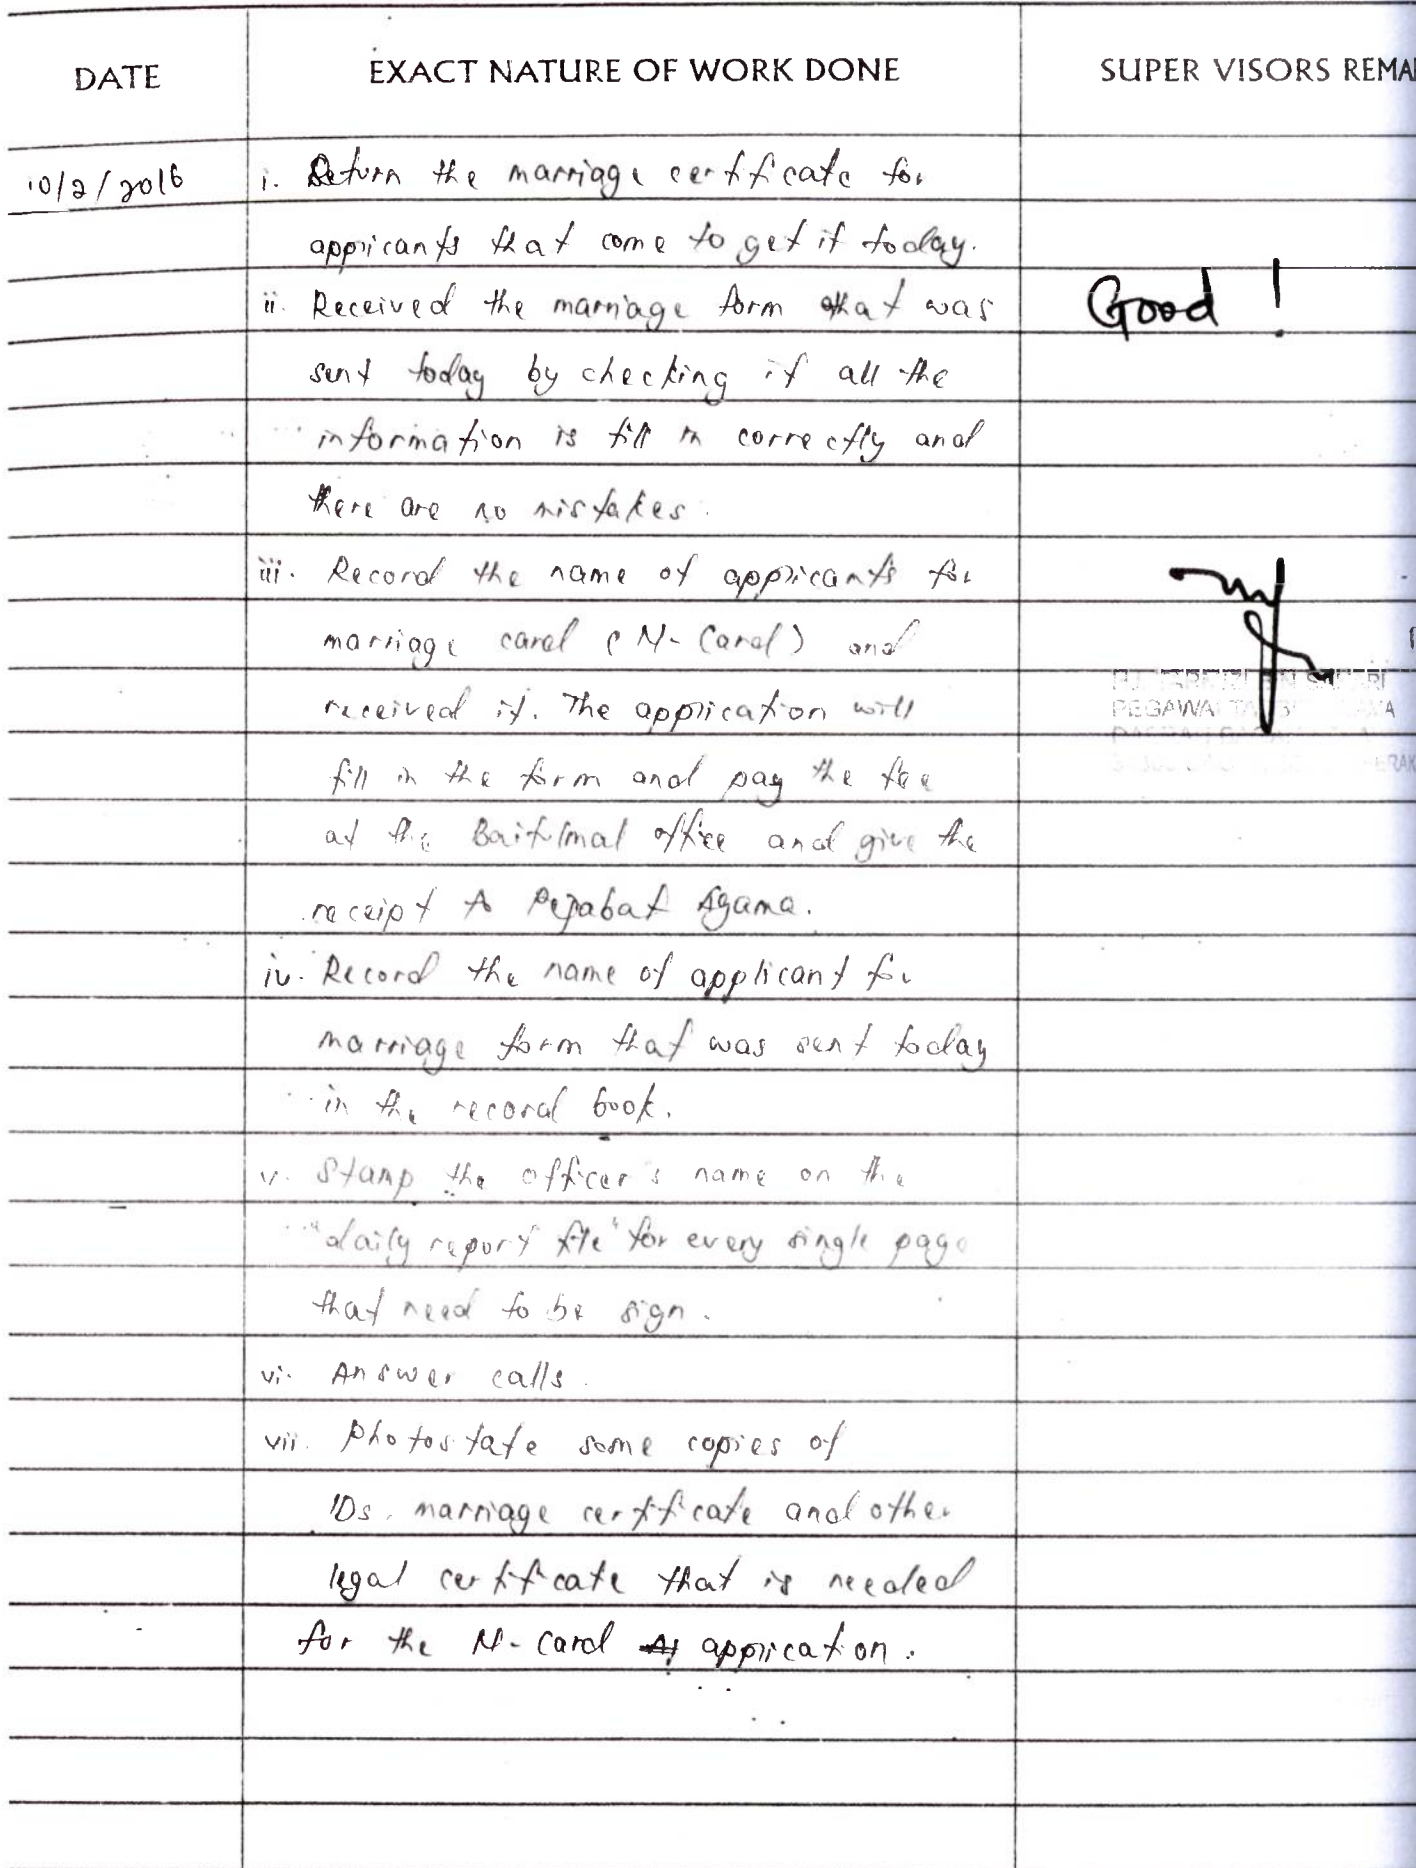 DATE
EXACT NATURE OF WORK DONE
SUPER VISORS REMA
10/2/2016
i. Return the marriage certificate for
appricants that come to get it today.
ii. Received the marriage form that was
Good !
sent today by checking if all the
information is fill in correctly and
there are no mistakes.
iii. Record the name of appricants for
marriage card (M-Card) and
received it. The apprication will
PEGAWAI
fill in the form and pay the fee
PERAK
at the Baitulmal office and give the
receipt to Pejabat Agama.
iv. Record the name of applicant for
marriage form that was sent today
in the record book.
v. Stamp the officer's name on the
"daily report file" for every single page
that need to be sign.
vi. Answer calls.
vii. Photostate some copies of
IDs, marriage certificate and other
legal certificate that is needed
for the M-Card apprication.